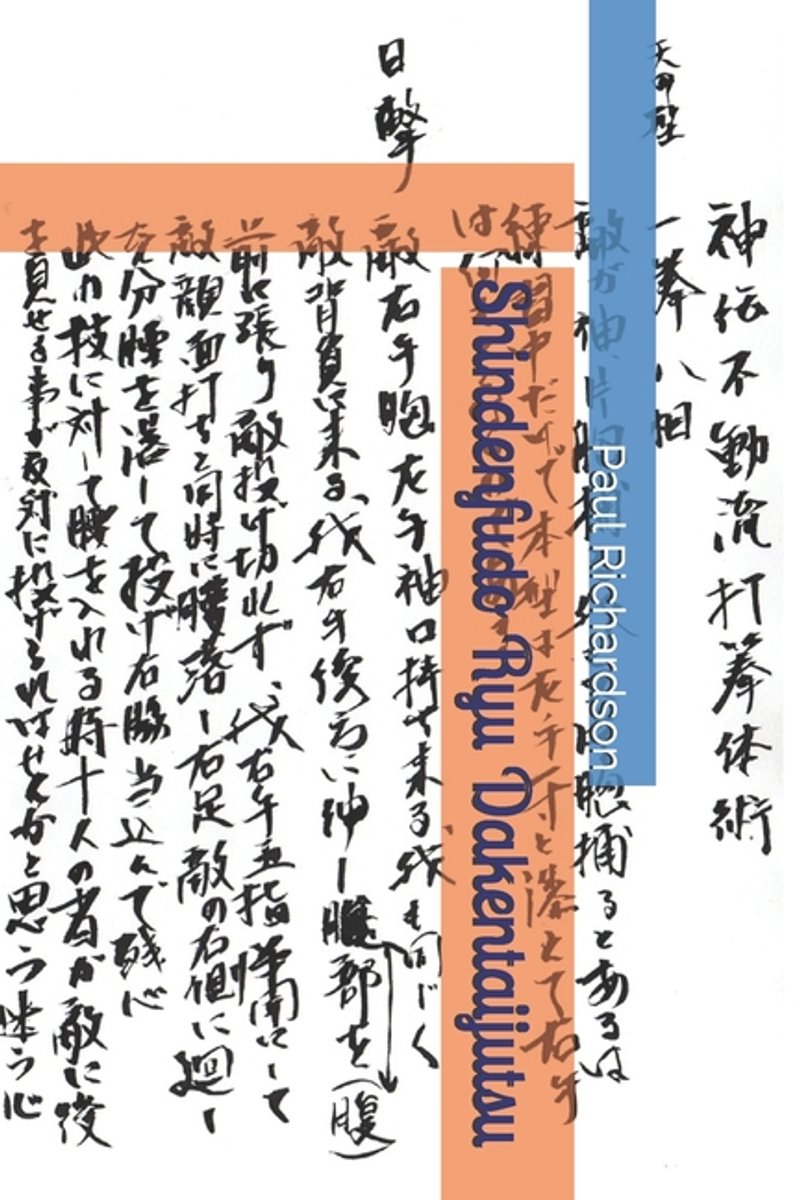 神伝不動流打拳体術
一拳八相
敵が袖、片胸 胸捕るとあるは
練習中だけで本型は左手一寸と添えて右手
は何
日撃
敵右手胸左手袖口持ち来る、我も同じく
敵背負に来る、我右手後方に伸し腰部を(腹)
前に張り敵投げ切れず、我右手五指拳開にして
敵顔面打ち同時に腰落し右足敵の右側に廻し
充分腰を落して投げ右脇当込んで残心
此の技に対して腰を入れる時十人の者が敵に後
を見せる事が反対に投げられはせんかと思う迷う心
Paul Richardson
Shindenfudo Ryu Dakentaijutsu